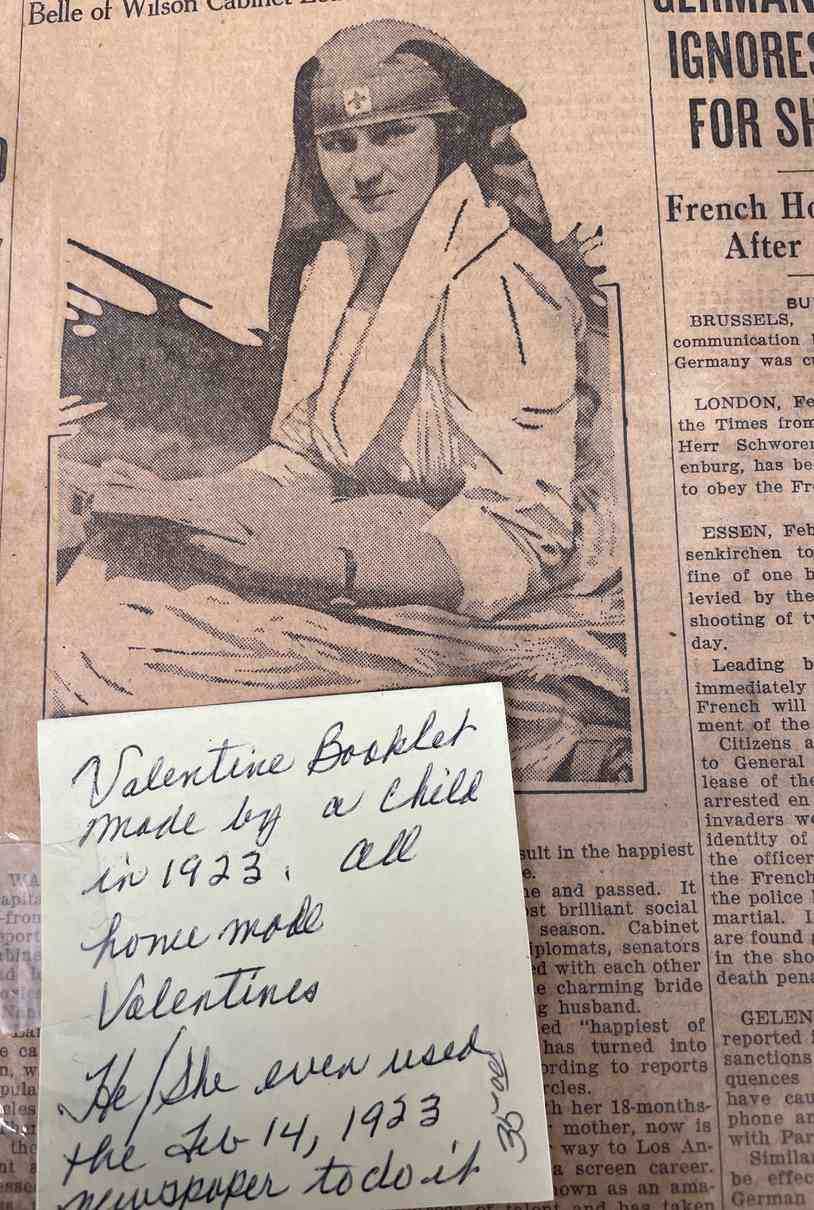 Belle of Wilson Cabinet
IGNORES
FOR SH
French Ho
After
BU
BRUSSELS,
communication
Germany was cu
LONDON, Fe
the Times from
Herr Schworer
enburg, has be
to obey the Fre
ESSEN, Feb
senkirchen to
fine of one b
levied by the
shooting of tw
day.
Leading b
immediately
French will
ment of the
Citizens a
to General
lease of the
arrested en
invaders we
identity of
the officer
the French
the police
martial. I
are found
in the sho
death pena
GELEN
reported i
sanctions
quences
have cau
phone an
with Par
Simila
be effec
German
sult in the happiest
e.
ne and passed. It
ost brilliant social
season. Cabinet
iplomats, senators
ed with each other
e charming bride
g husband.
ed "happiest of
has turned into
ording to reports
rcles.
th her 18-months-
mother, now is
way to Los An-
a screen career.
own as an ama-
of talent and has taken
Valentine Booklet
made by a child
in 1923. all
home made
Valentines
He/She even used
the Feb 14, 1923
newspaper to do it
35.00